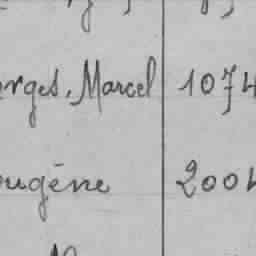 orges, Marcel 1074
ougène 2004